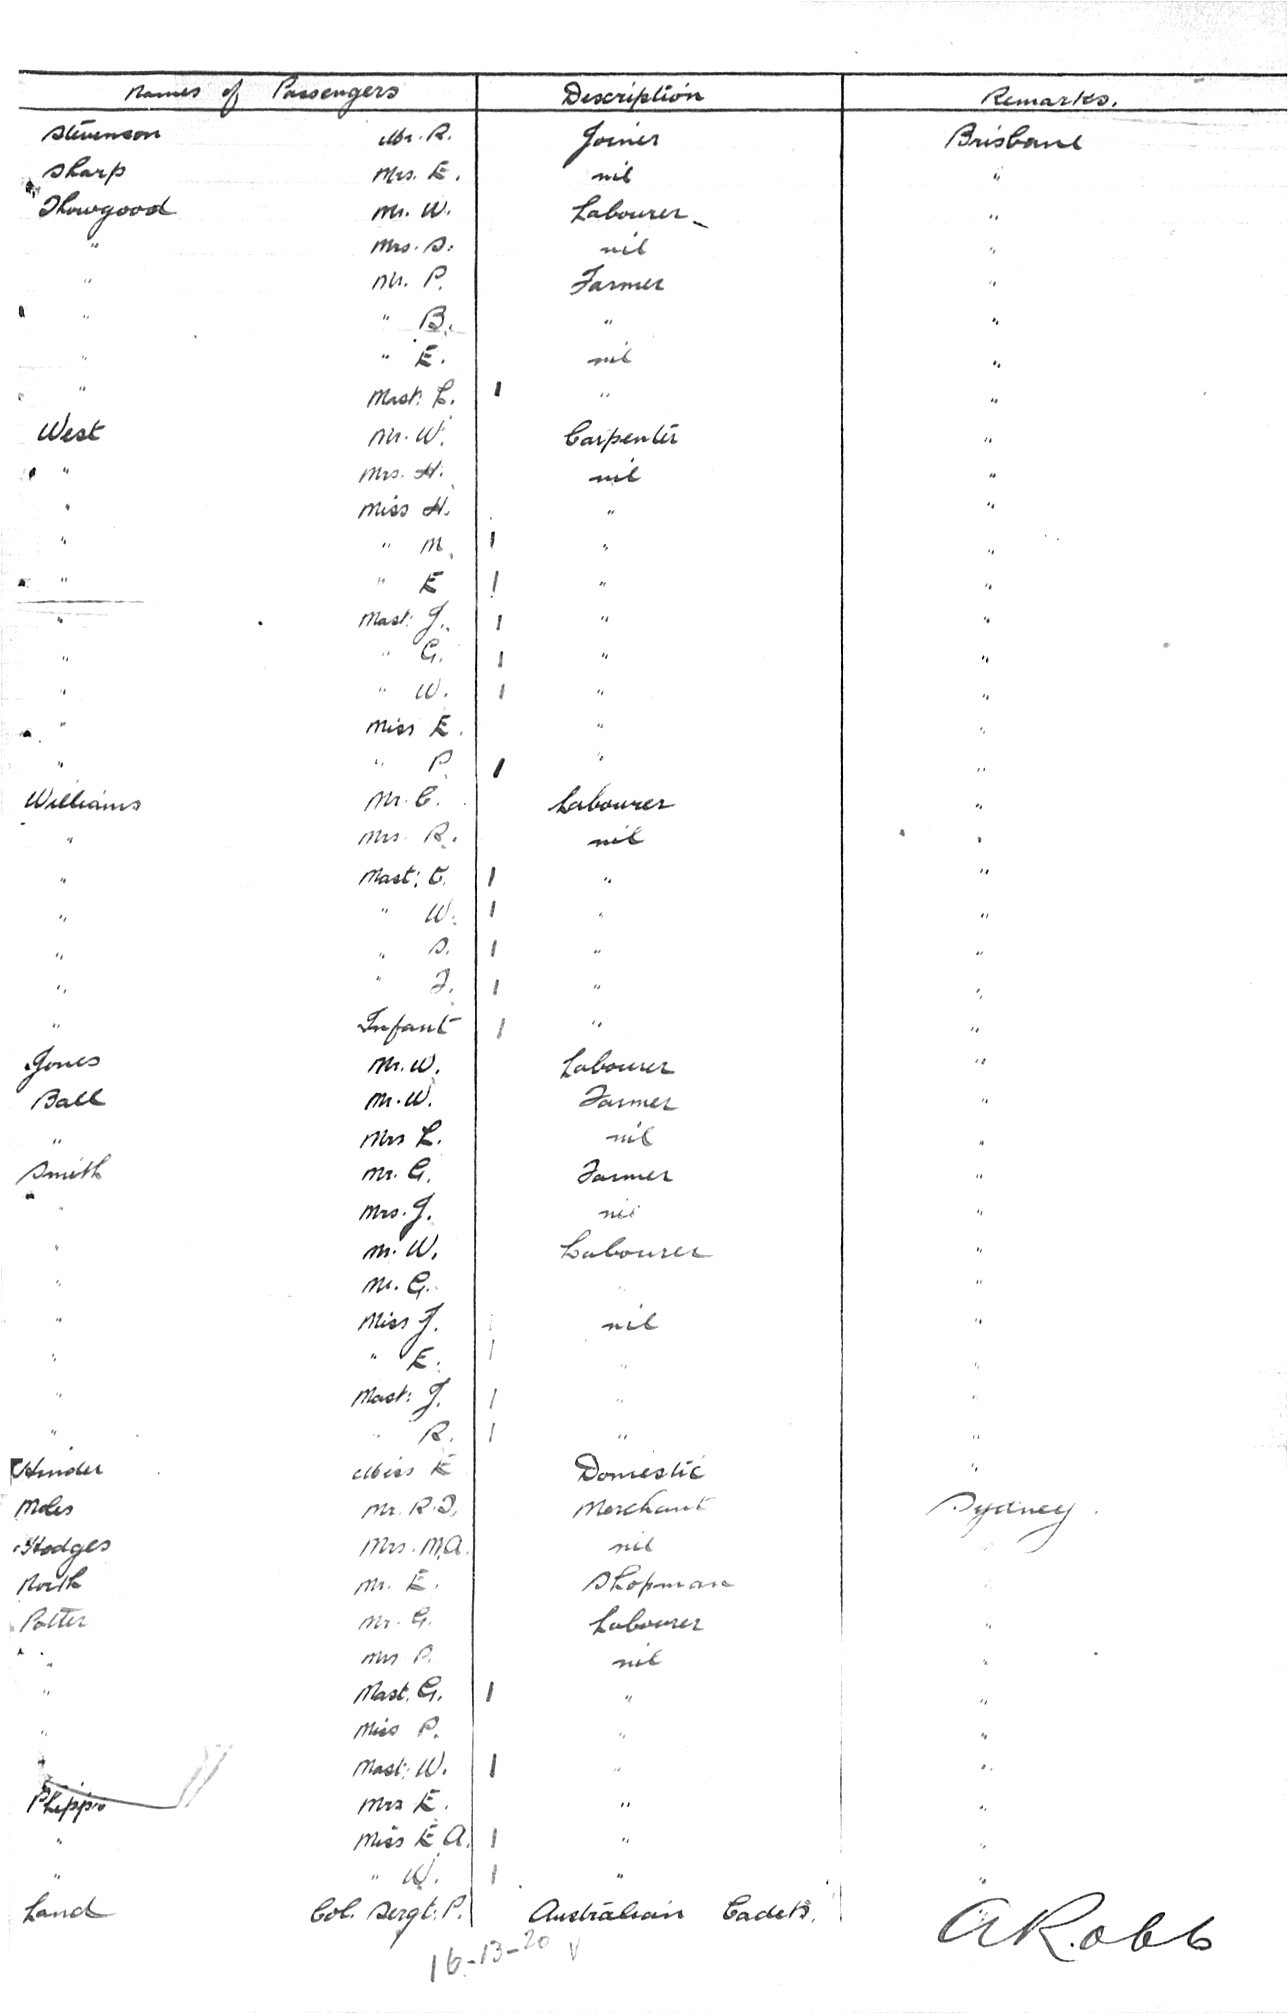 Names of Passengers Description Remarks.
Stevenson Mr. R. Joiner Brisbane
Sharp Mrs. E. nil "
Thowgood Mr. W. Labourer "
" Mrs. S. nil "
" Mr. P. Farmer "
" " B. " "
" " E. nil "
" Mast: L. 1 " "
West Mr. W. Carpenter "
" Mrs. H. nil "
" Miss H. " "
" " M. 1 " "
" " E 1 " "
" Mast: J. 1 " "
" " G. 1 " "
" " W. 1 " "
" Miss E. " "
" " P. 1 " "
Williams Mr. C. Labourer "
" Mrs. R. nil "
" Mast: C. 1 " "
" " W. 1 " "
" " S. 1 " "
" " F. 1 " "
" Infant 1 " "
Jones Mr. W. Labourer "
Ball Mr. W. Farmer "
" Mrs L. nil "
Smith Mr. G. Farmer "
" Mrs. J. nil "
" Mr. W. Labourer "
" Mr. G. " "
" Miss J. 1 nil "
" " E. 1 " "
" Mast: J. 1 " "
" " R. 1 " "
Hinder Miss E Domestic "
Moles Mr. R. Merchant Sydney.
Hodges Mrs. M.A. nil "
North Mr. E. Shopman "
Potter Mr. G. Labourer "
" Mrs P. nil "
" Mast. G. 1 " "
" Miss P. " "
" Mast: W. 1 " "
Phipps Mrs E. " "
" Miss E.A. 1 " "
" " W. 1 " "
Land Col. Sergt. P. Australian Cadets. "
A Robb
16-13-20